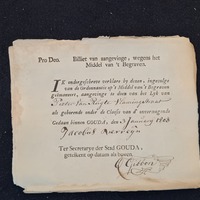 Pro Deo. Billet van aangevinge, wegens het
Middel van 't Begraven.
IK ondergeschreve verklare by deezen, ingevolge
van de Ordonnantie op 't Middel van 't Begraven
geëmaneert, aangevinge te doen van het Lyk van
Pieter van
als gehoorende onder de Classe van d' onvermogende
Gedaan binnen GOUDA, den 3 January 1803
Jacobus
Ter Secretarye der Stad GOUDA,
getekent op datum als boven.